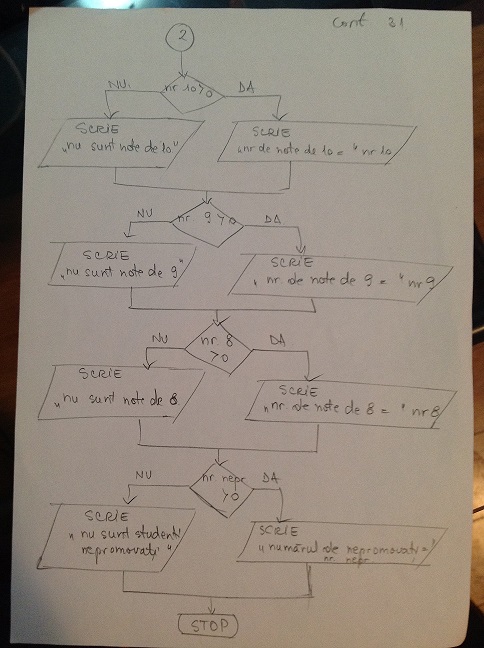 Cont. 31
2
nr 10>0
NU
DA
SCRIE
„nu sunt note de 10"
SCRIE
„nr de note de 10 = " nr 10
nr. 9>0
NU
DA
SCRIE
„nu sunt note de 9"
SCRIE
„ nr. de note de 9 = " nr 9
nr. 8
>0
NU
DA
SCRIE
„ nu sunt note de 8
SCRIE
„nr. de note de 8 = " nr 8
nr. nepr
>0
NU
DA
SCRIE
„ nu sunt studenți
nepromovați "
SCRIE
„ numărul de nepromovați = "
nr. nepr
STOP